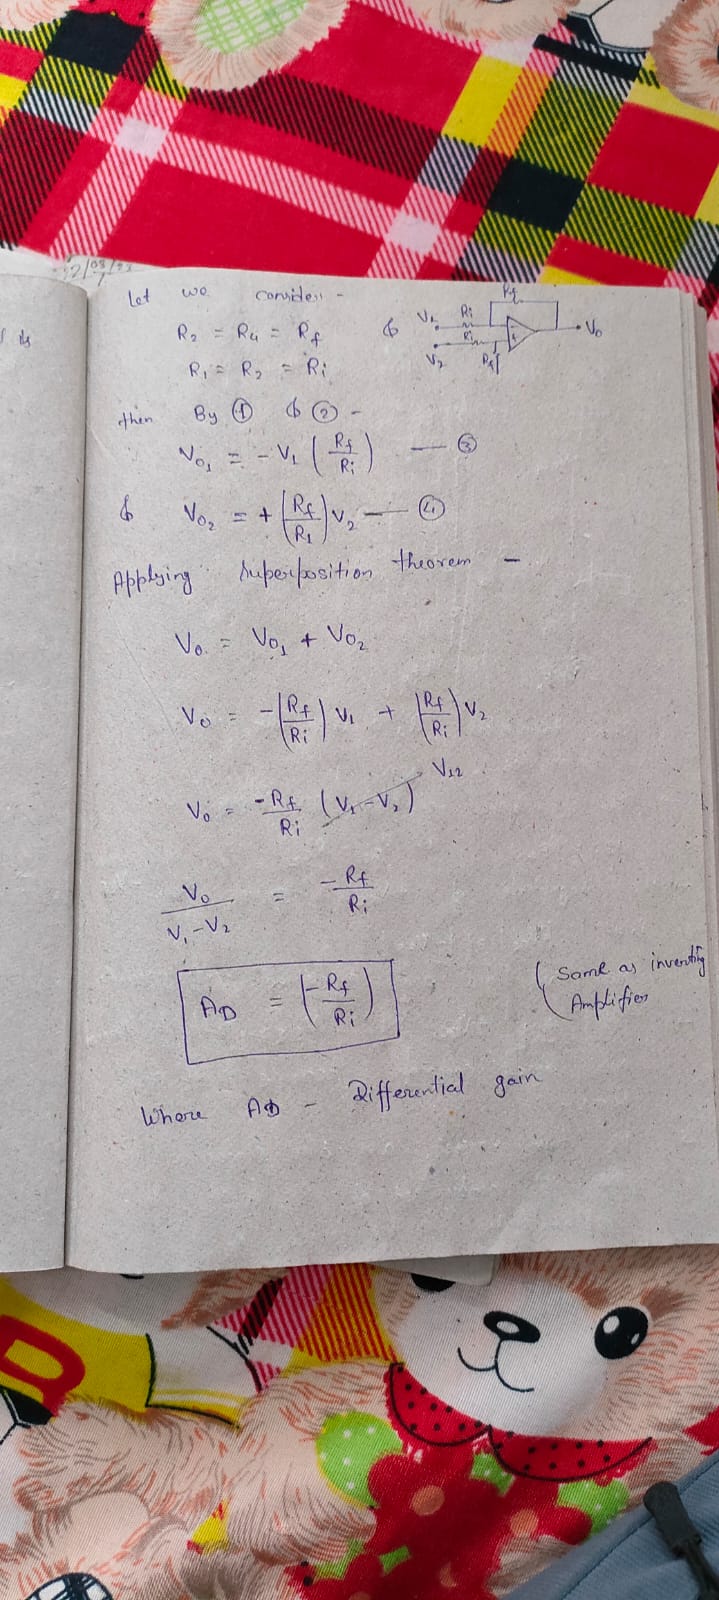 Let we consider -
R₂ = R₄ = Rf &
R₁ = R₂ = Ri
Rf
V₁ Ri
Ri V₀
V₂ Rf
then By ① & ② -
V₀₁ = - V₁ (Rf/Ri) — ③
& V₀₂ = + (Rf/R₁) V₂ — ④
Applying Superposition theorem -
V₀ = V₀₁ + V₀₂
V₀ = -(Rf/Ri) V₁ + (Rf/Ri) V₂
V₁₂
V₀ = -Rf/Ri (V₁-V₂)
V₀/V₁-V₂ = -Rf/Ri
AD = (-Rf/Ri)
(Same as inverting
Amplifier
Where AD - Differential gain